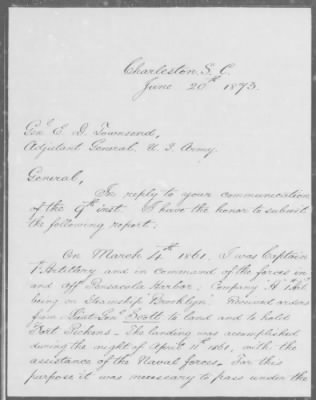 Charleston, S. C.
June 20th 1873.
Genl E. D. Townsend,
Adjutant General, U. S. Army.
General,
In reply to your communication
of the 9th inst. I have the honor to submit
the following report:
On March 4th 1861, I was Captain
1st Artillery and in command of the forces in
and off Pensacola Harbor; Company "A" 1st Art.
being on Steamship "Brooklyn". Received orders
from Lieut. Genl Scott to land and to hold
Fort Pickens. The landing was accomplished
during the night of April 11th 1861, with the
assistance of the Naval forces. For this
purpose it was necessary to pass under the